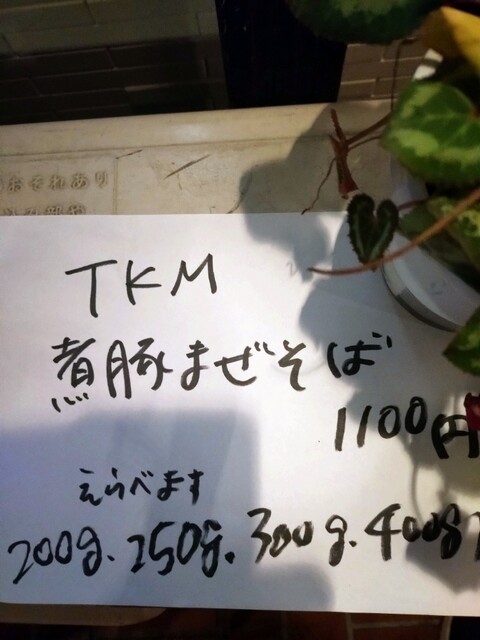 おそれあり
TKM
煮豚まぜそば
1100円
えらべます
200g. 250g. 300g. 400g